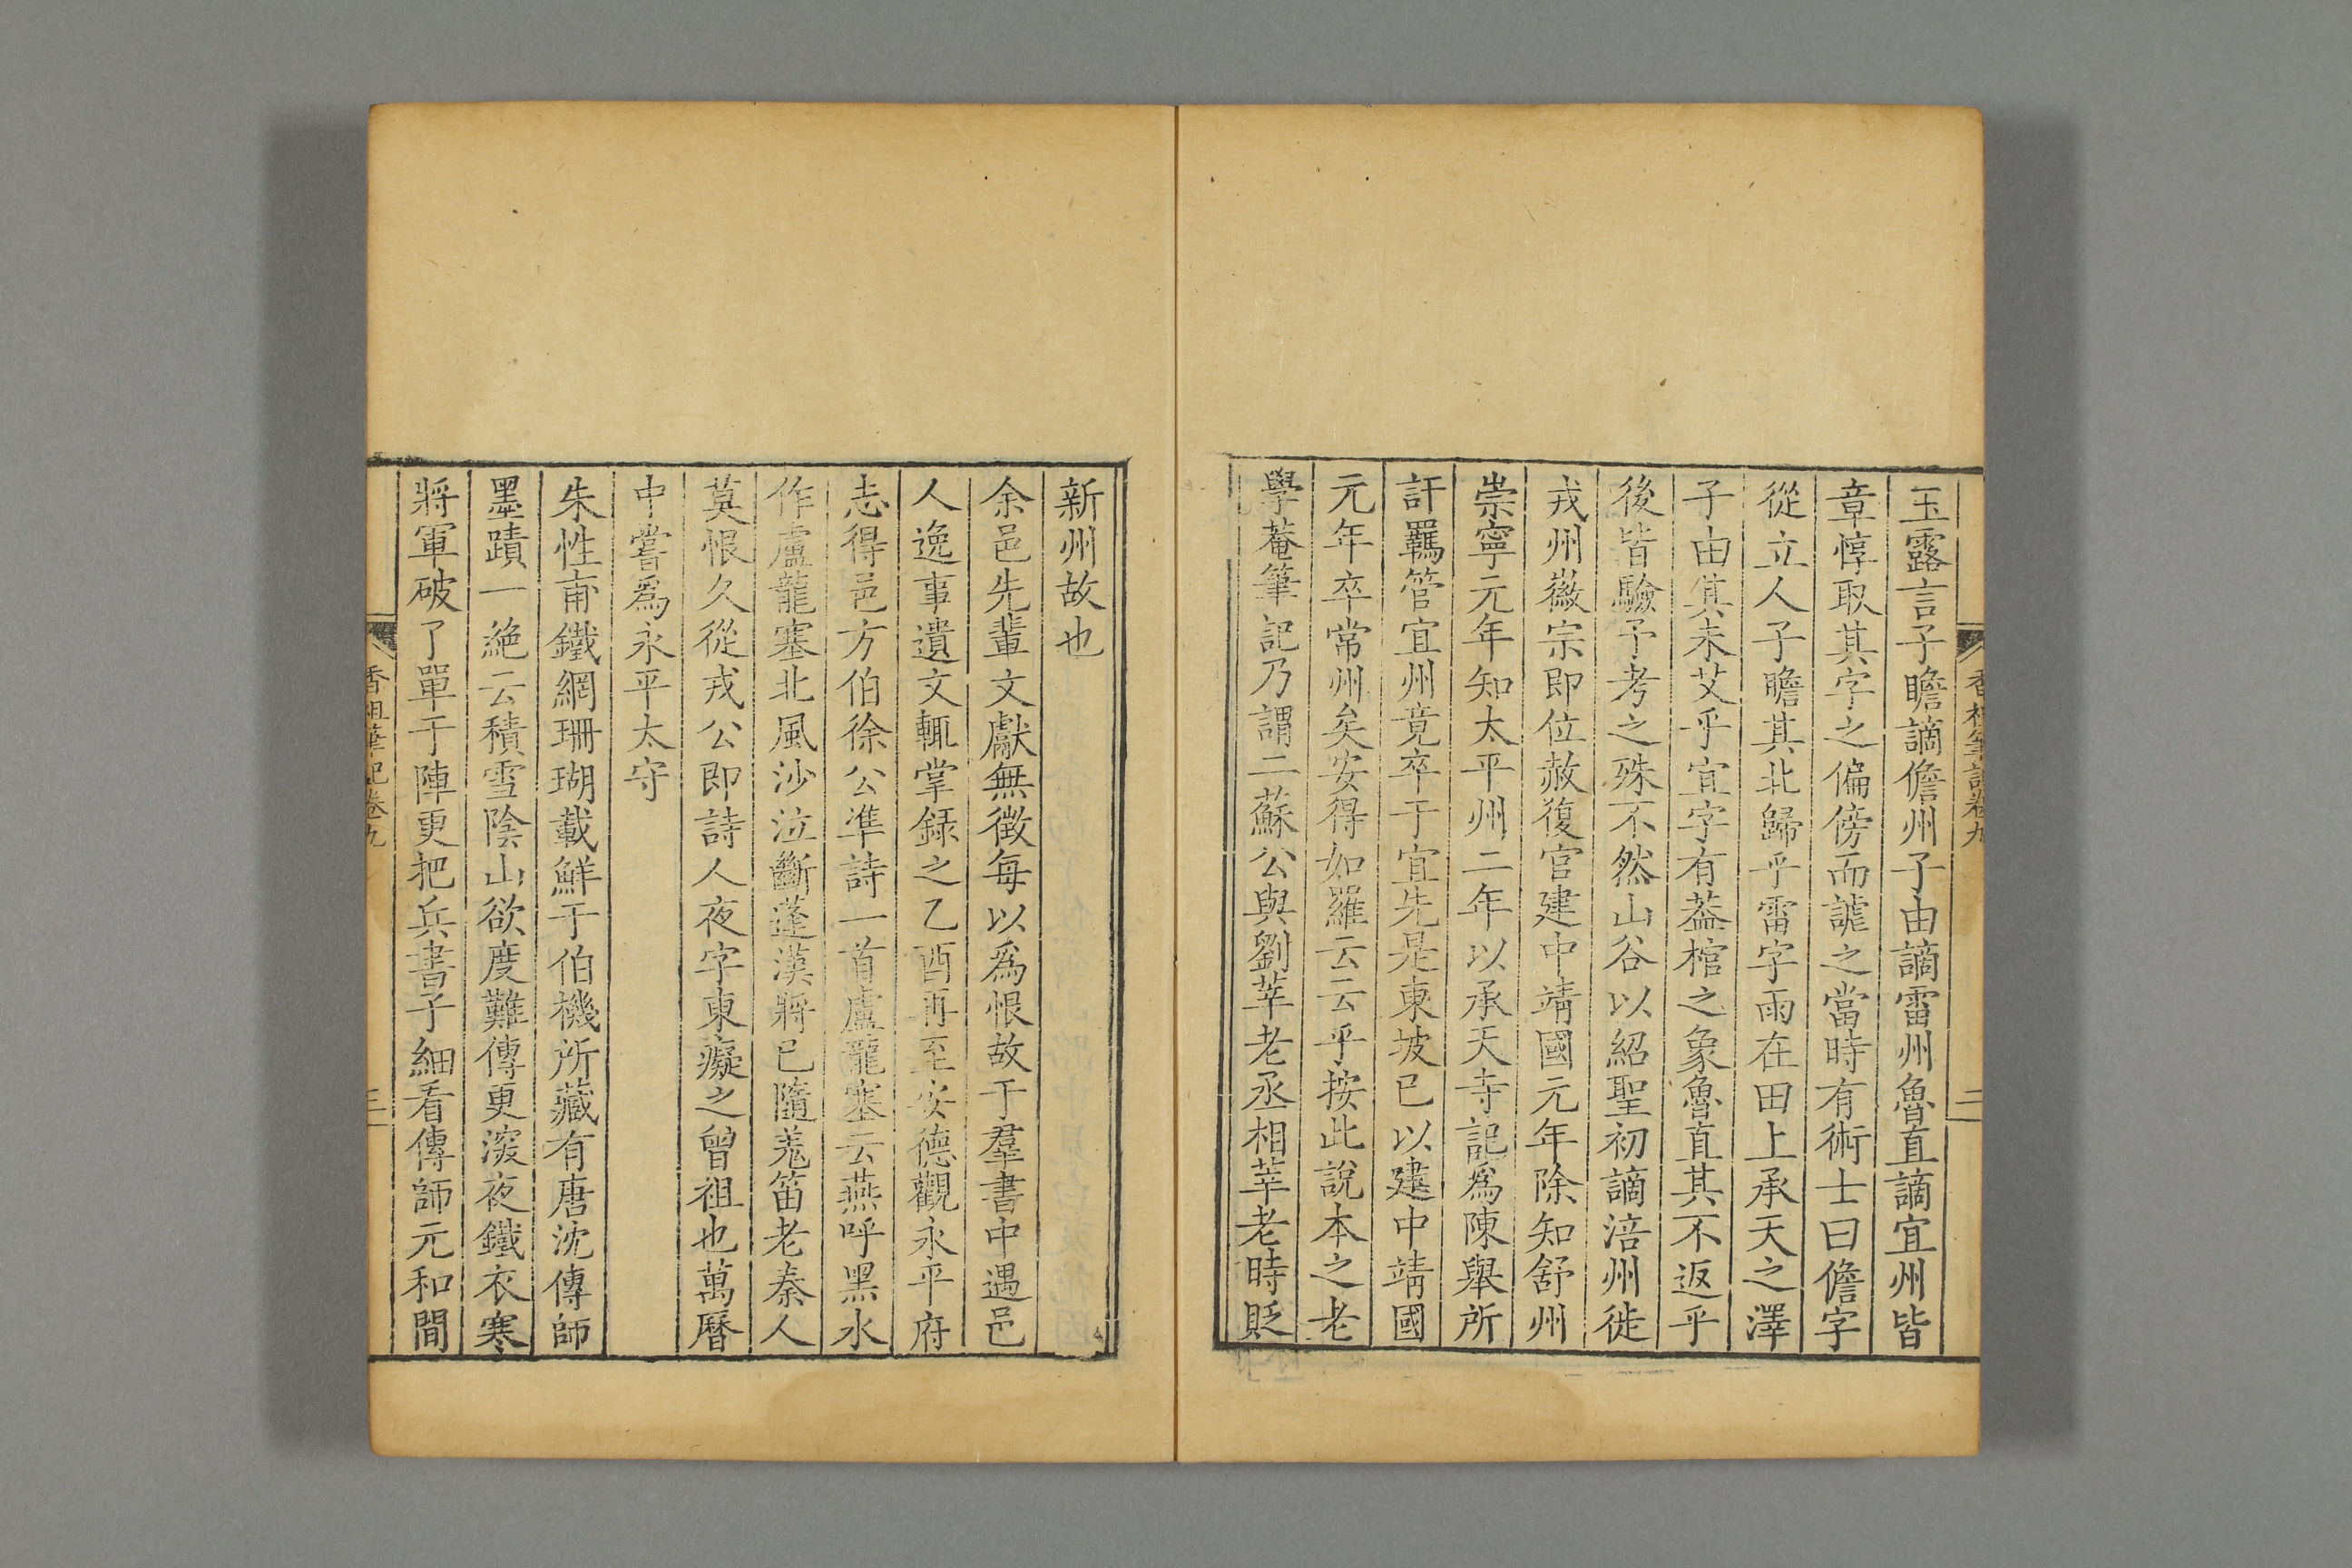 香祖筆記卷九
二
玉露言子瞻謫儋州子由謫雷州魯直謫宜州皆
章惇取其字之偏傍而謔之當時有術士曰儋字
從立人子瞻其北歸乎雷字雨在田上承天之澤
子由其未艾乎宜字有葢棺之象魯直其不返乎
後皆驗予考之殊不然山谷以紹聖初謫涪州徙
戎州徽宗即位赦復官建中靖國元年除知舒州
崇寧元年知太平州二年以承天寺記為陳舉所
訐羈管宜州竟卒于宜先是東坡已以建中靖國
元年卒常州矣安得如羅云云乎按此說本之老
學菴筆記乃謂二蘇公與劉莘老丞相莘老時貶
新州故也
余邑先輩文獻無徵每以為恨故于羣書中遇邑
人逸事遺文輒掌錄之乙酉再至安德觀永平府
志得邑方伯徐公準詩一首盧龍塞云燕呼黑水
作盧龍塞北風沙泣斷蓬漢將已隨羗笛老秦人
莫恨久從戎公即詩人夜字東癡之曾祖也萬曆
中嘗為永平太守
朱性甫鐵網珊瑚載鮮于伯機所藏有唐沈傳師
墨蹟一絕云積雪陰山欲度難傳更深夜鐵衣寒
將軍破了單于陣更把兵書子細看傳師元和間
香祖筆記卷九
三